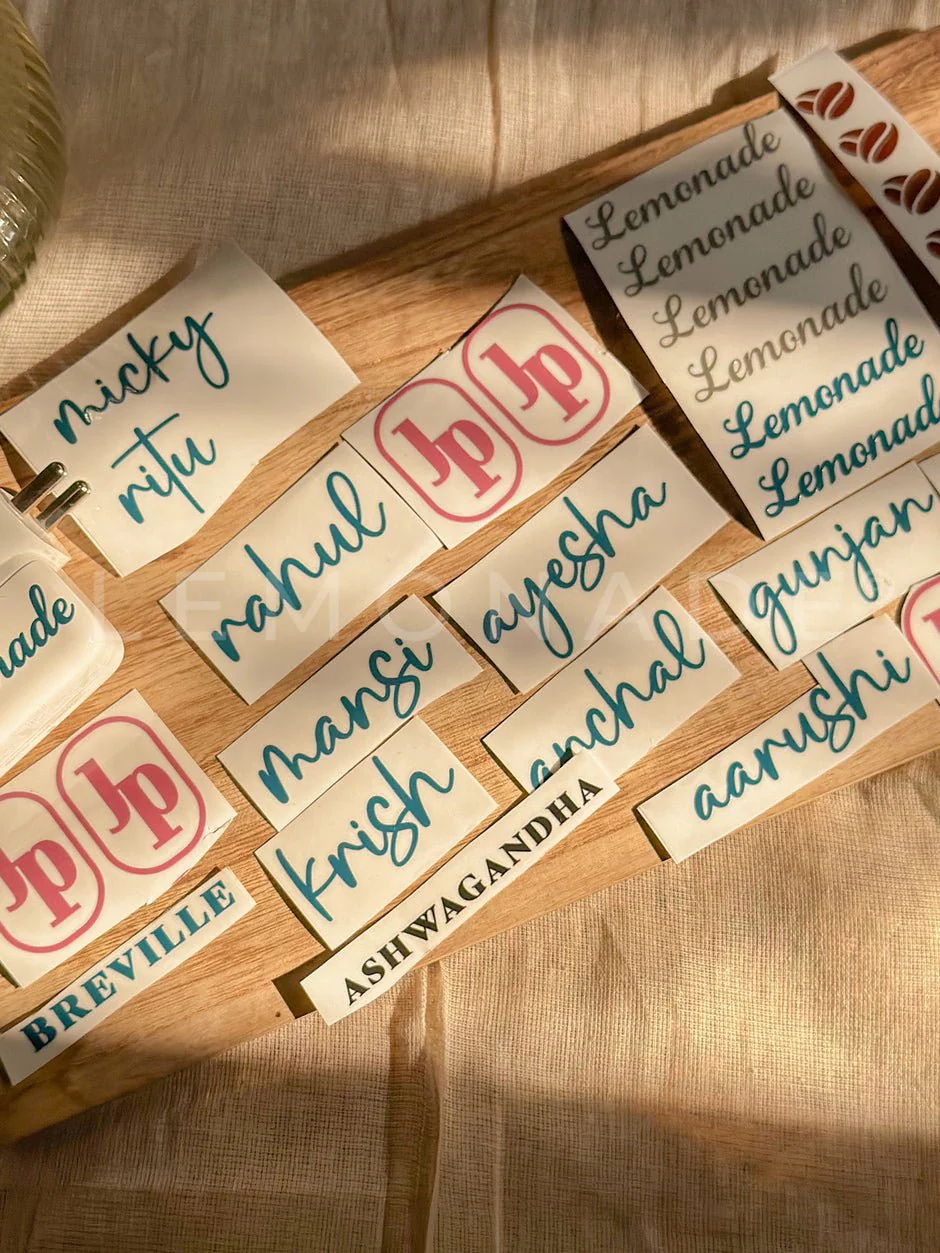 Lemonade
Lemonade
Lemonade
Lemonade
Lemonade
Lemonad
micky
ritu
JP
JP
rahul
ayesha
gunjan
LEMONADE
nade
mansi
anchal
aarushi
krish
JP
JP
ASHWAGANDHA
BREVILLE